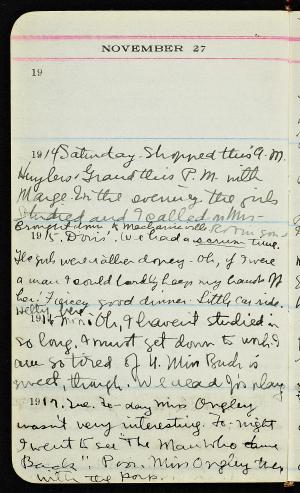 NOVEMBER 27
19
1914 Saturday. Shopped this A.M.
Huylers & Grand this P.M. with
Marge. In the evening the girls
studied and I called on Mrs.
Brought down to Mechanicville
1915. Davis'. We had a serum time.
The girls were rather dopey - Oh, if I were
a man I could hardly keep my hands off
her! good dinner. Little car ride.
1916 Oh, I haven't studied in
so long. I must get down to work. I
am so tired of it. Miss Bush is
sweet, though. We read Jr. play
1917. Tue. To-day Miss Ongley
wasn't very interesting. To-night
I went to see "The Man Who Came
Back". Poor. Miss Ongley
with the